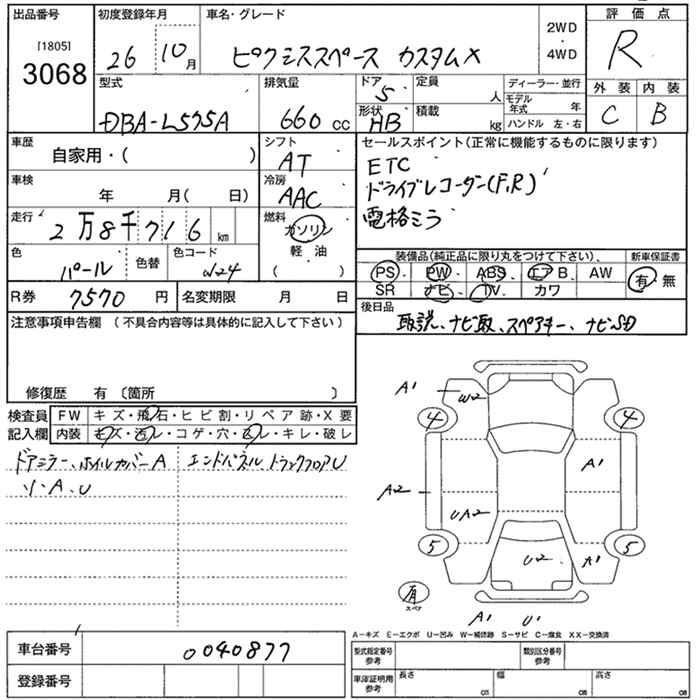 出品番号 初度登録年月 車名・グレード 評価点
[1805] 26 10月 ピクシススペース カスタムX 2WD・4WD R
3068
型式 排気量 ドア 5 定員 人 ディーラー・並行 外装 内装
DBA-L575A 660 cc 形状 HB 積載 kg モデル年式 年 C B
ハンドル 左・右
車歴 自家用・( ) シフト AT セールスポイント(正常に機能するものに限ります)
ETC
車検 年 月( 日) 冷房 AAC ドライブレコーダー(F,R)
電格ミラ
走行 2万8千716km 燃料 ガソリン
軽油
( )
色 パール 色替 色コード W24 装備品(純正品に限り丸をつけて下さい)、 新車保証書
PS・PW・ABS・エアB、AW 有・無
SR ナビ・TV、カワ
R券 7570円 名変期限 月 日 後日品
取説、ナビ取、スペアキー、ナビSD
注意事項申告欄 (不具合内容等は具体的に記入して下さい)
修復歴 有〔箇所 〕
検査員 FW キズ・飛石・ヒビ割・リペア跡・X要
記入欄 内装 キズ・汚レ・コゲ・穴・凹レ・キレ・破レ
ドアミラー、ホイルカバーA エンドパネル、トランクフロアU
リ・A、U
A1 W2
4 4
A1
A2
UA2
5 5
U2 A1
有
スペア
A1 U1
A−キズ E−エクボ U−凹み W−補修跡 S−サビ C−腐食 XX−交換済
車台番号 0040877 型式指定番号 参考 類別区分番号 参考
登録番号 車庫証明用 参考 長さ cm 幅 cm 高さ cm